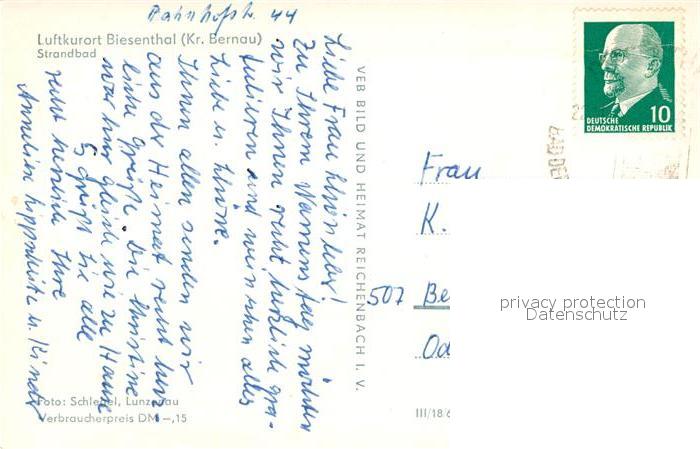 Bahnhofstr. 44
Luftkurort Biesenthal (Kr. Bernau)
Strandbad
Liebe Frau
Zu Ihrem Namenstag möchten
wir Ihnen recht herzlich gra-
tulieren und wünschen alles
Liebe u.
Ihnen allen senden wir
aus der Heimat recht herz-
liche Grüße. Die Christine
war hier gleich wie zu Hause
Es grüßt Sie alle
recht herzlich Ihre
u. Kinder
Foto: Schlegel, Lunzenau
Verbraucherpreis DM –,15
VEB BILD UND HEIMAT REICHENBACH I. V.
III/18/6
DEUTSCHE
DEMOKRATISCHE REPUBLIK
10
Frau
K.
507 Be
Od
privacy protection
Datenschutz